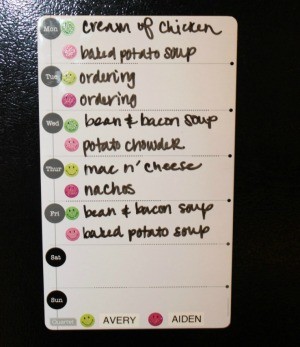 Mon cream of chicken
baked potato soup
Tue ordering
ordering
Wed bean & bacon soup
potato chowder
Thur mac n' cheese
nachos
Fri bean & bacon soup
baked potato soup
Sat
Sun
AVERY AIDEN